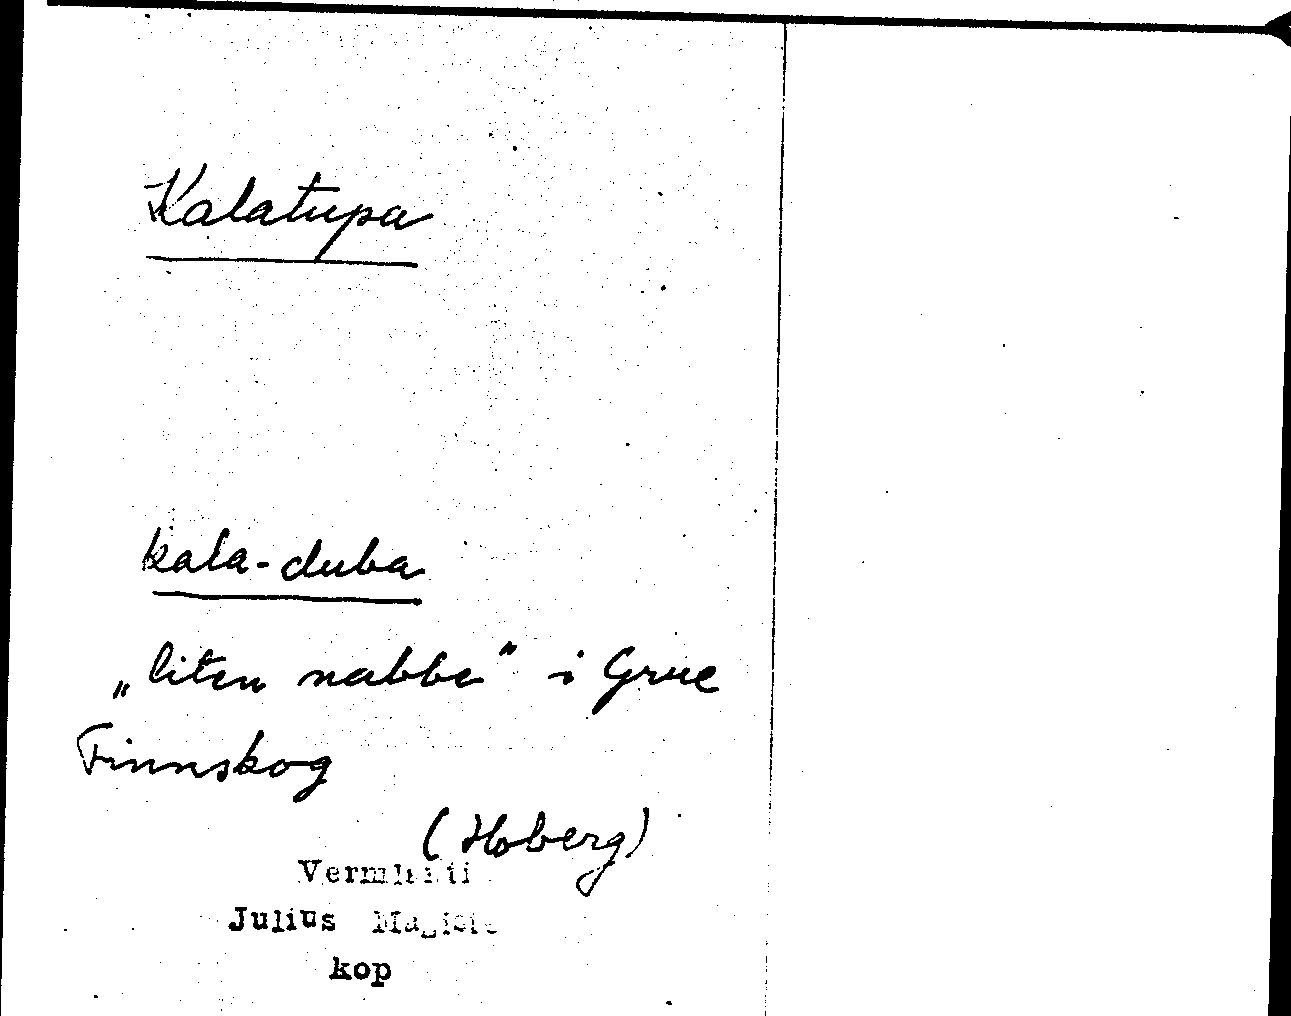 Kalatupa
kala-duba
„liten nabbe" i Grue
Finnskog
(Hoberg)
Julius
kop